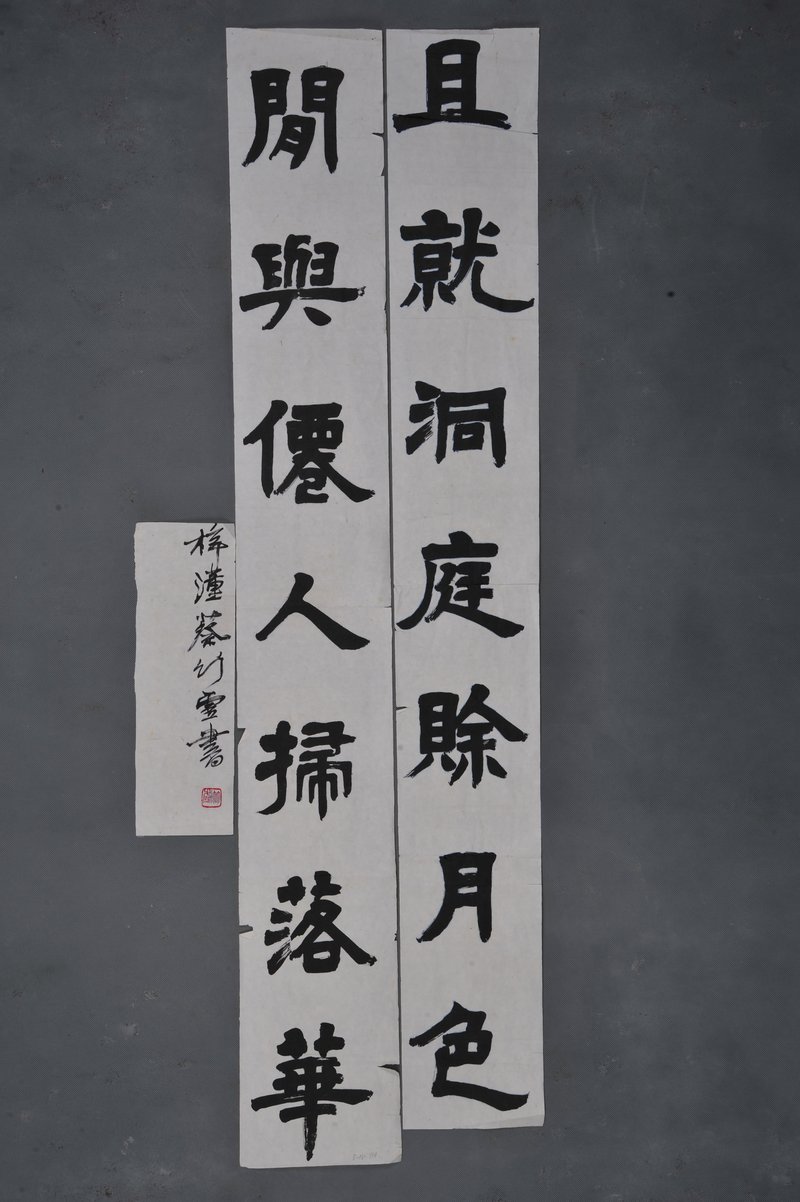 且就洞庭賒月色
閒與僊人掃落華
梓潼蔡竹雲書